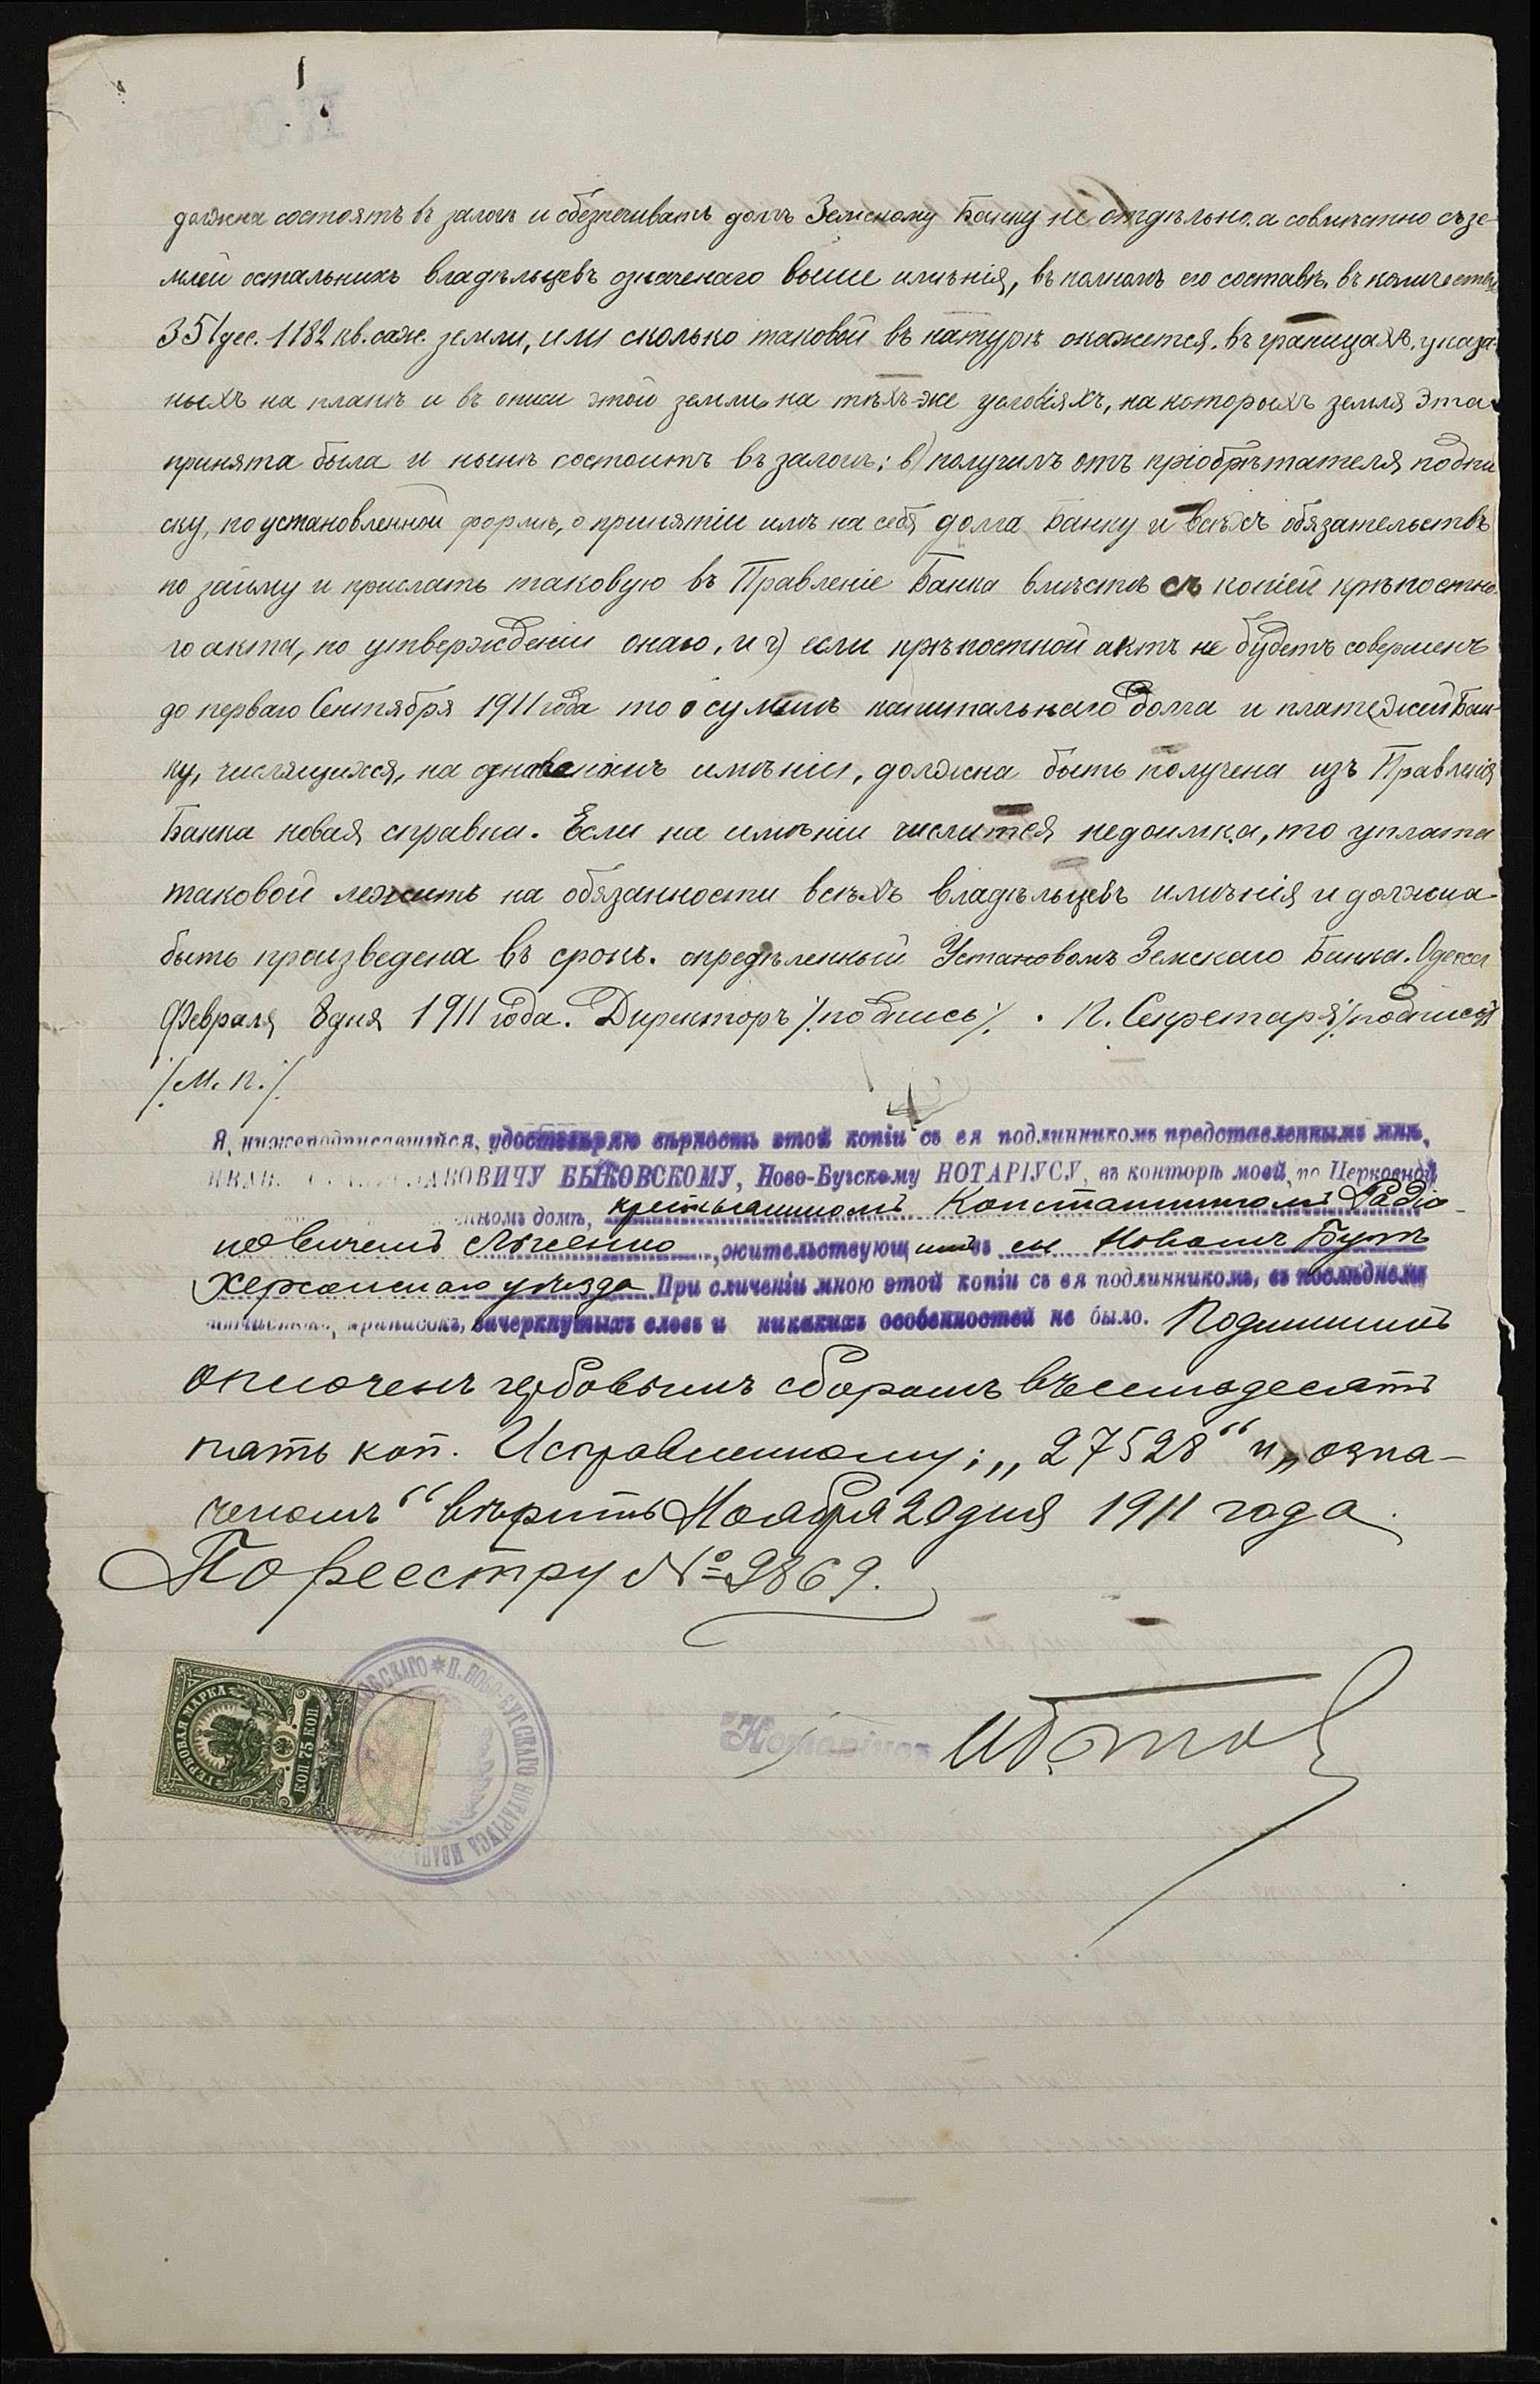 должна состоять въ залогѣ и обезпечивать долгъ Земскому Банку не отдѣльно, а совмѣстно съ зе-
млей остальныхъ владѣльцевъ означенаго выше имѣнія, въ полномъ его составѣ, въ количествѣ
351 дес. 1182 кв. саж. земли, или сколько таковой въ натурѣ окажется, въ границахъ, указа-
ныхъ на планѣ и въ описи этой земли, на тѣхъ-же условіяхъ, на которыхъ земля эта
принята была и нынѣ состоитъ въ залогѣ; в) получилъ отъ пріобрѣтателя подпи
ску, по установленной формѣ, о принятіи имъ на себя долга Банку и всѣхъ обязательствъ
по займу и прислать таковую въ Правленіе Банка вмѣстѣ съ копіей крѣпостно-
го акта, по утвержденіи онаго, и г) если крѣпостной актъ не будетъ совершенъ
до перваго Сентября 1911 года то о суммѣ капитальнаго долга и платежей Бан-
ку, числящихся, на означеномъ имѣніи, должна быть получена изъ Правленія
Банка новая справка. Если на имѣніи числится недоимка, то уплата
таковой лежитъ на обязанности всѣхъ владѣльцевъ имѣнія и должна
быть произведена въ срокъ. опредѣленный Уставовомъ Земскаго Банка. Одесса
Февраля 8 дня 1911 года. Директоръ /подпись/. П. Секретаря /подпись/
/М. п./
Я, нижеподписавшійся, удостовѣряю вѣрность этой копіи съ ея подлинникомъ представленнымъ мнѣ,
ИВАНУ БЫКОВСКОМУ, Ново-Бугскому НОТАРІУСУ, въ конторѣ моей, по Церковной
домѣ, крестьяниномъ Константиномъ Радіо-
новичемъ , жительствующимъ въ с. Новомъ Бугѣ
Херсонскаго уѣзда При сличеніи мною этой копіи съ ея подлинникомъ, въ послѣднемъ
приписокъ, зачеркнутыхъ словъ и никакихъ особенностей не было. Подлинникъ
оплоченъ гербовымъ сборомъ въ семьдесятъ
пять коп. Исправленному; „27528“ и „озна-
ченомъ“ вѣрить Ноября 20 дня 1911 года.
По реестру № 9869.
Нотаріусъ
ГЕРБОВАЯ МАРКА
КОП 75 КОП
П. НОВО-БУГСКАГО НОТАРІУСА ИВАНА